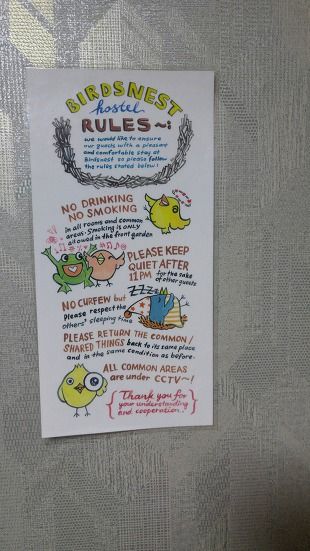 BIRDSNEST
hostel
RULES~:
we would like to ensure
our guests with a pleasant
and comfortable stay at
Birdsnest so please follow
the rules stated below!
NO DRINKING
NO SMOKING
in all rooms and common
areas. Smoking is ONLY
allowed in the front garden
PLEASE KEEP
QUIET AFTER
11PM for the sake
of other guests
ZZZ
NO CURFEW but
Please respect the
others' sleeping time
PLEASE RETURN THE COMMON/
SHARED THINGS back to its same place
and in the same condition as before.
ALL COMMON AREAS
are under CCTV~!
Thank you for
your understanding
and cooperation!